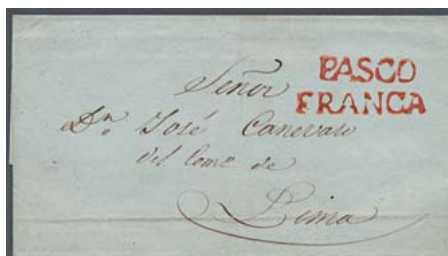 PASCO
FRANCA
Señor
Dn. José Canevaro
del Como. de
Lima